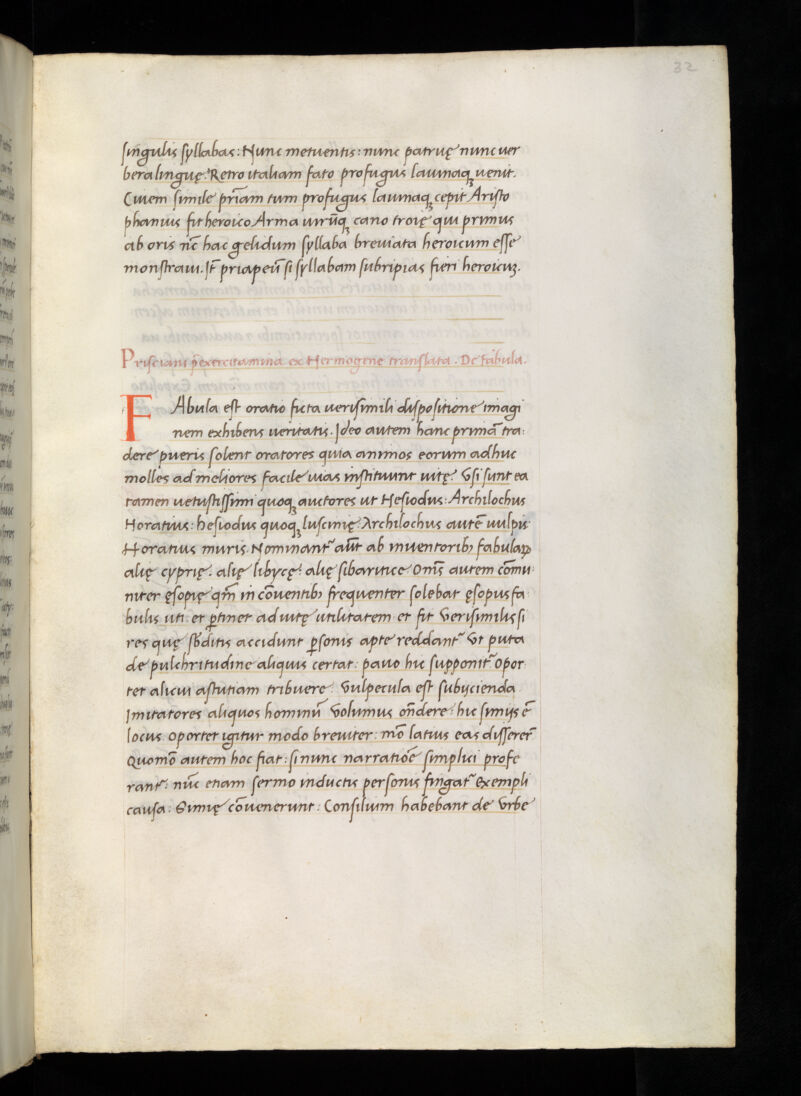 32
singulis syllabas: Nunc metuentis: nunc patruę nunc uer
bera linguę. Retro italiam fato profugus lauinaqꝫ uenit.
Cuiem simile priam tum profugus lauinaqꝫ cepit Aristo
phanius fit heroico Arma uirũqꝫ cano troię qui primus
ab oris nc̃ hac gelidum syllaba breuiata heroicum esse
monstraui. It̃ priapeũ si syllabam subripias fieri heroicuꝫ.
Prisciani p̃exercitamina ex Hermogene translata. De fabula.
FAbula est oratio ficta uerisimili dispositione imagi
nem exhibens ueritatis. Ideo autem hanc primã tra:
dere pueris solent oratores quia animos eorum adhuc
molles ad meliores facile uias instituunt uitę. Vsi sunt ea
tamen uetustissimi quoqꝫ auctores ut Hesiodus: Archilochus
Horatius: hesiodus quoqꝫ luscinię Archilochus autẽ uulpis
Horatius muris. Nominant᷑ aũt ab inuentoribꝫ fabulaꝝ
alię cyprię: alię libycę: alię sibaritice Oms̃ autem cõmu
niter ęsopię qm̃ in cõuentibꝫ frequenter solebat ęsopus fa
bulis uti. et ꝑtinet ad uitę utilitatem et fit Verisimilis si
res quę sb̃ditis accidunt ꝑsonis apte reddant᷑ Vt puta
de pulchritudine aliquis certat: pauo hic supponit᷑ opor
tet alicui astutiam tribuere: Vulpecula est subijcienda
Imitatores aliquos hominũ Volumus on̄dere: hic simijs ẽ
locus. oportet igitur modo breuiter: mõ latius eas disserer̃
Quomõ autem hoc fiat: si nunc narratiõe simplici profe
rant᷑: nũc etiam sermo inductis personis fingat᷑ Exempli
causa: Simię cõuenerunt: Consilium habebant de Vrbe